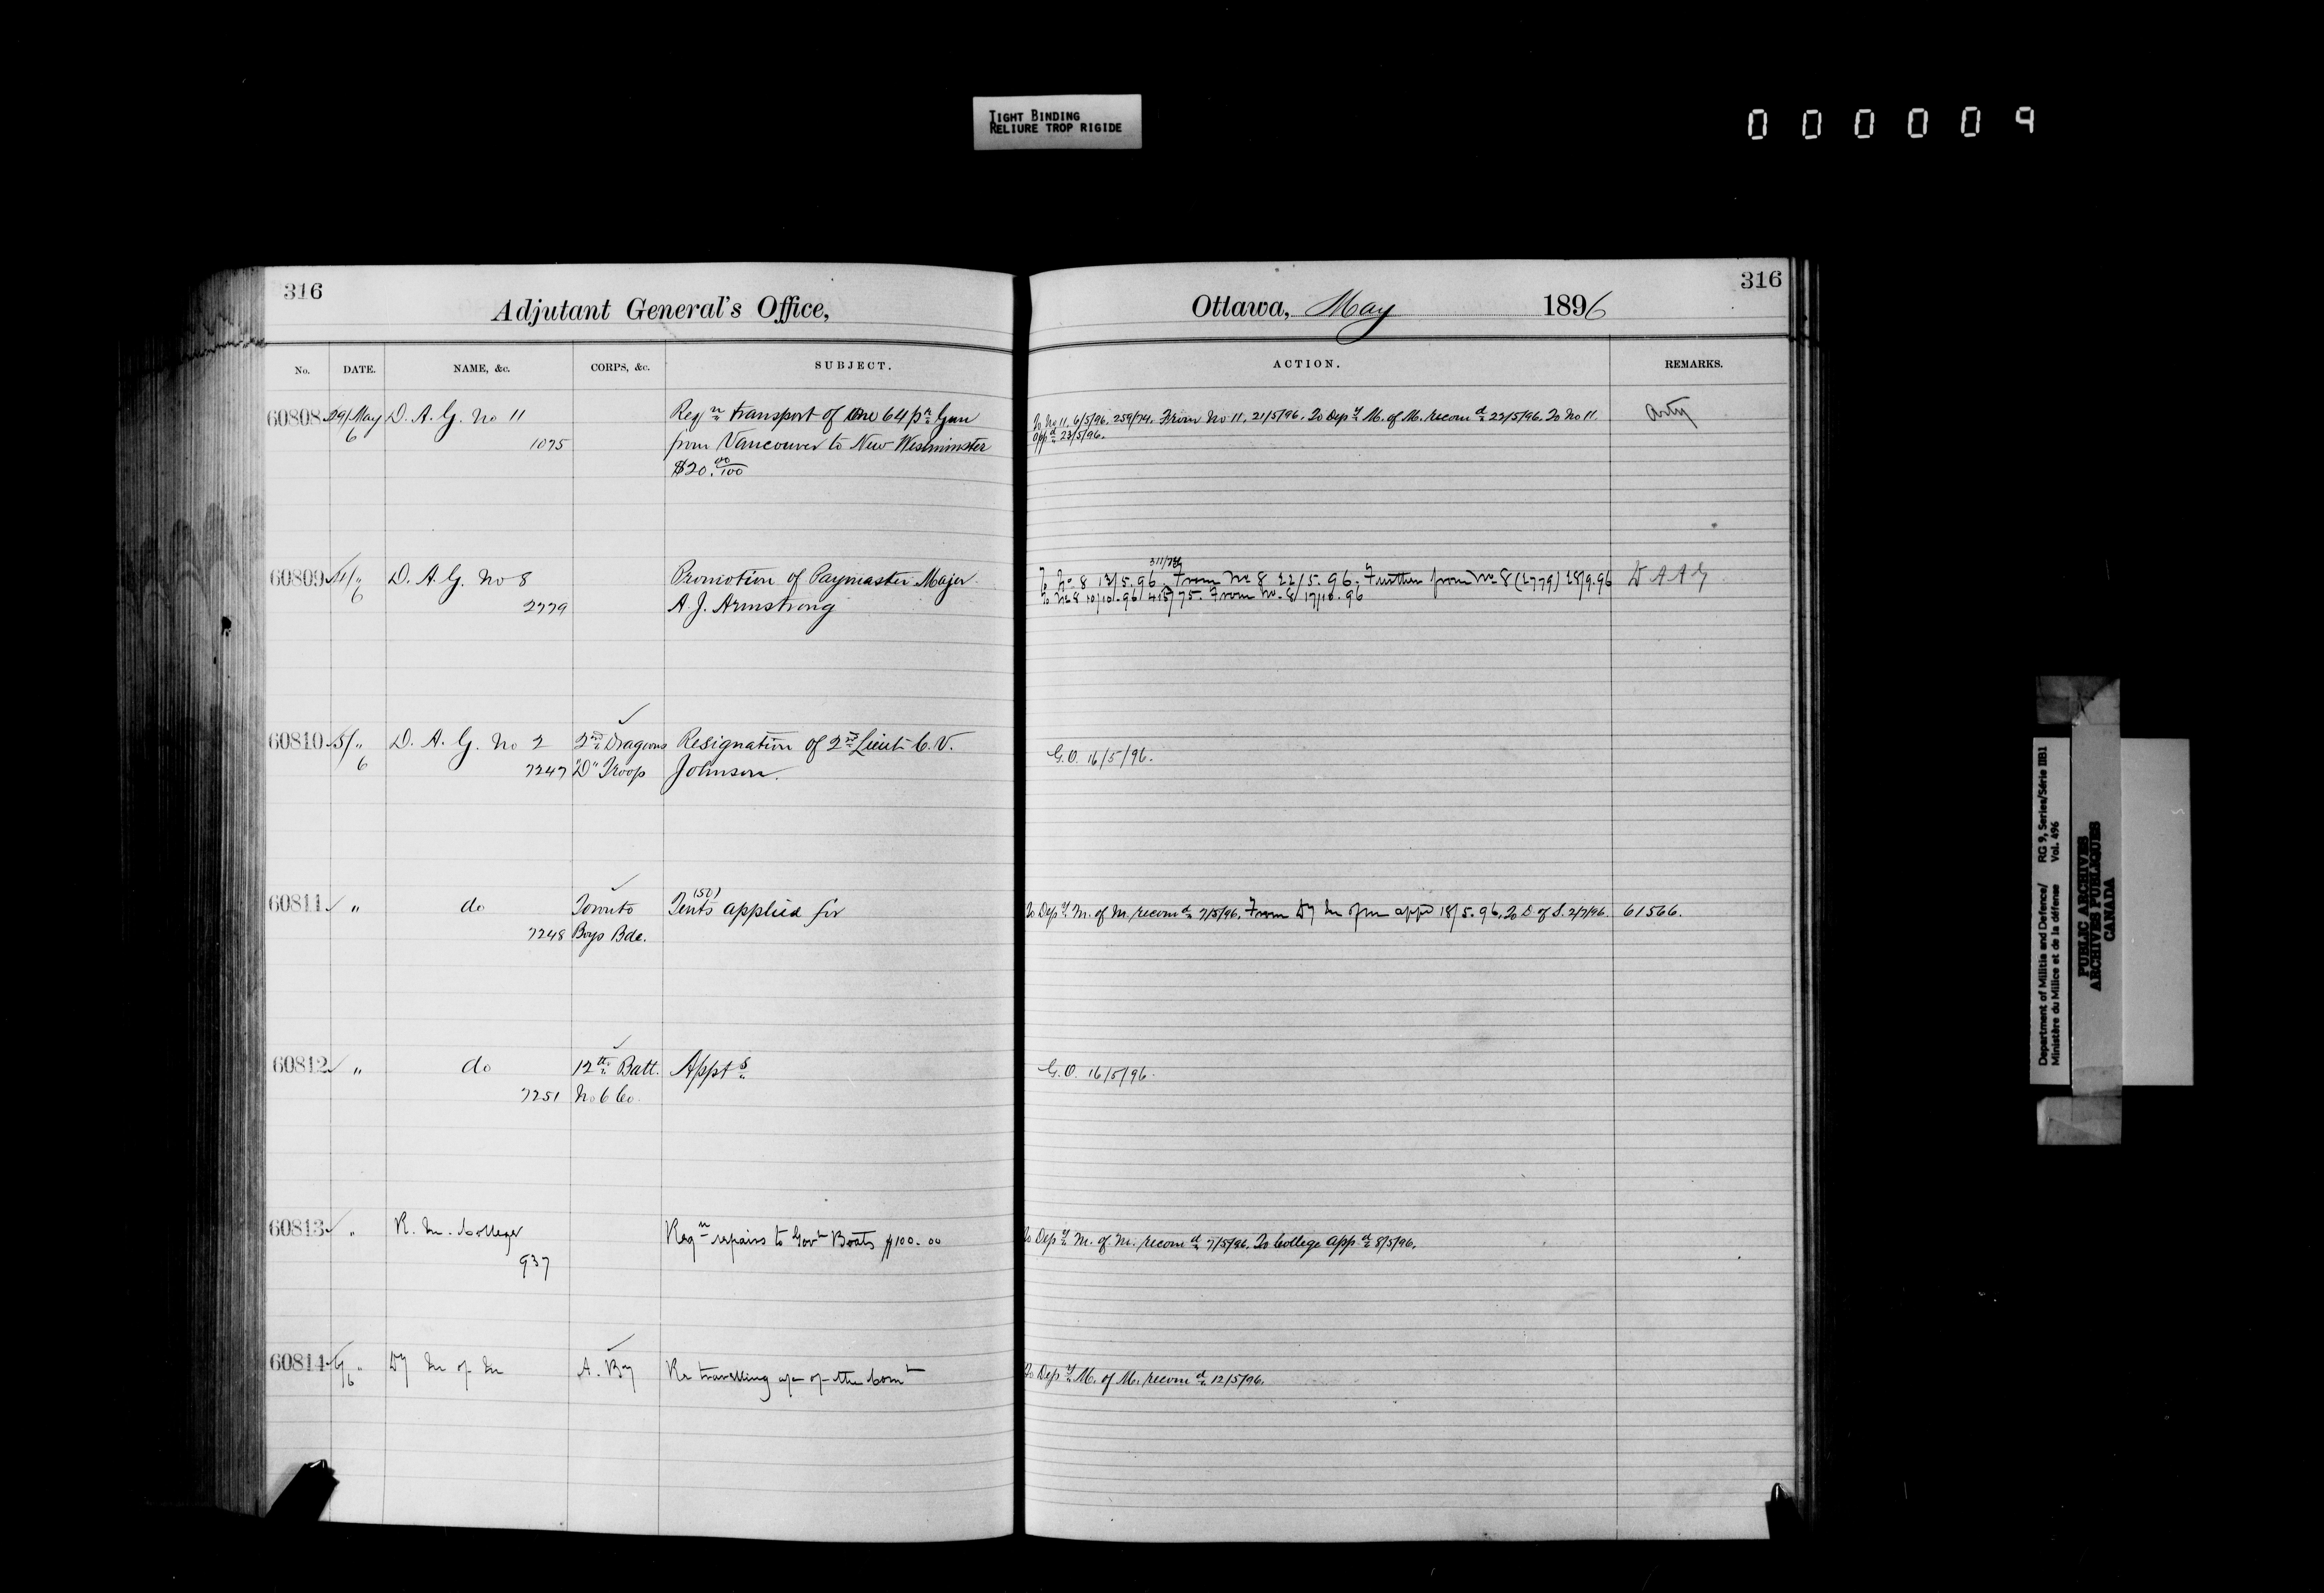 TIGHT BINDING
RELIURE TROP RIGIDE
0 0 0 0 0 9
316
Adjutant General's Office,
No. DATE. NAME, &c. CORPS, &c. SUBJECT.
60808 29/May D. A. G. No 11 Reqn transport of one 64 pr Gun
6 1075 from Vancouver to New Westminster
$20.00/100
60809 " D. A. G. No 8 Promotion of Paymaster Major
6 2779 A. J. Armstrong
60810 5/ " D. A. G. No 2 2nd Dragoons Resignation of 2nd Lieut C. V.
6 7247 "D" Troop Johnson.
(50)
60811 " do Toronto Tents applied for
7248 Boys Bde.
60812 " do 12th Batt. Appts
7251 No 6 Co.
60813 " R. M. College Reqn repairs to Govt Boats $100.00
937
60814 " Dy M of M A. By Re travelling of the Comt
6
316
Ottawa, May 1896
ACTION. REMARKS.
To No 11. 6/5/96. 259/74. From No 11. 21/5/96. To Depy M. of M. recomd 22/5/96. To No 11. Arty
appd 23/5/96.
To No 8 13/5.96. From No 8 22/5.96. Further from No 8 (2779) 28/9.96 D A A G
To No 8 10/10.96 From No. 8 17/10.96
G.O. 16/5/96.
To Depy M. of M. recomd 7/5/96. From Dy M of M appd 18/5.96. To D of S. 2/7/96. 61566.
G.O. 16/5/96.
To Depy M. of M. recomd 7/5/96. To College appd 8/5/96.
To Depy M. of M. recomd 12/5/96.
Department of Militia and Defence/ RG 9, Series/Série IIB1
Ministère du Milice et de la défense Vol. 496
PUBLIC ARCHIVES
ARCHIVES PUBLIQUES
CANADA